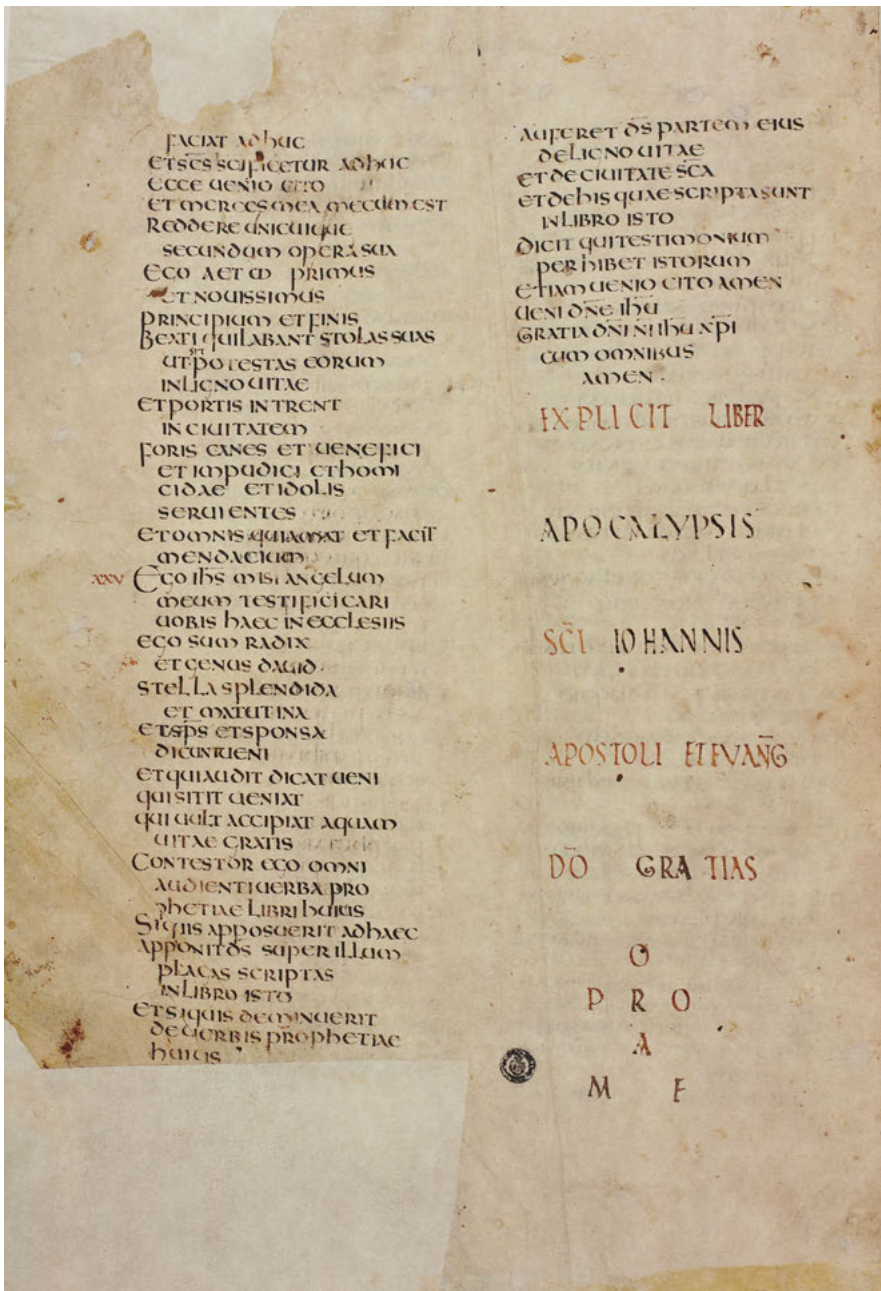 FACIAT ADHUC
ETSCS SCIFICETUR ADHUC
ECCE UENIO CITO
ET MERCES MEA MECUM EST
REDDERE UNICUIQUE
SECUNDUM OPERA SUA
EGO A ET ω PRIMUS
ET NOUISSIMUS
PRINCIPIUM ET FINIS
BEATI QUI LABANT STOLAS SUAS
UT POTESTAS EORUM
IN LIGNO UITAE
ET PORTIS INTRENT
IN CIUITATEM
FORIS CANES ET UENEFICI
ET IMPUDICI ET HOMI
CIDAE ET IDOLIS
SERUIENTES
ET OMNIS QUI AMAT ET FACIT
MENDACIUM
XXV EGO IHS MISI ANGELUM
MEUM TESTIFICICARI
UOBIS HAEC IN ECCLESIIS
EGO SUM RADIX
ET GENUS DAUID
STELLA SPLENDIDA
ET MATUTINA
ET SPS ET SPONSA
DICUNT UENI
ET QUI AUDIT DICAT UENI
QUI SITIT UENIAT
QUI UULT ACCIPIAT AQUAM
UITAE GRATIS
CONTESTOR EGO OMNI
AUDIENTI UERBA PRO
PHETIAE LIBRI HUIUS
SI QUIS APPOSUERIT AD HAEC
APPONIT DS SUPER ILLUM
PLAGAS SCRIPTAS
IN LIBRO ISTO
ET SI QUIS DEMINUERIT
DE UERBIS PROPHETIAE
HUIUS
AUFERET D̄S PARTEM EIUS
DE LIGNO UITAE
ET DE CIUITATE S̄CA
ET DE HIS QUAE SCRIPTA SUNT
IN LIBRO ISTO
DICIT QUI TESTIMONIUM
PERHIBET ISTORUM
ETIAM UENIO CITO AMEN
UENI D̄NE IHU
GRATIA D̄NI N̄I IHU X̄PI
CUM OMNIBUS
AMEN·
EXPLICIT LIBER
APOCALYPSIS
SC̄I IOHANNIS
APOSTOLI ET EVANḠ
DŌ GRATIAS
O
P R O
A
M E